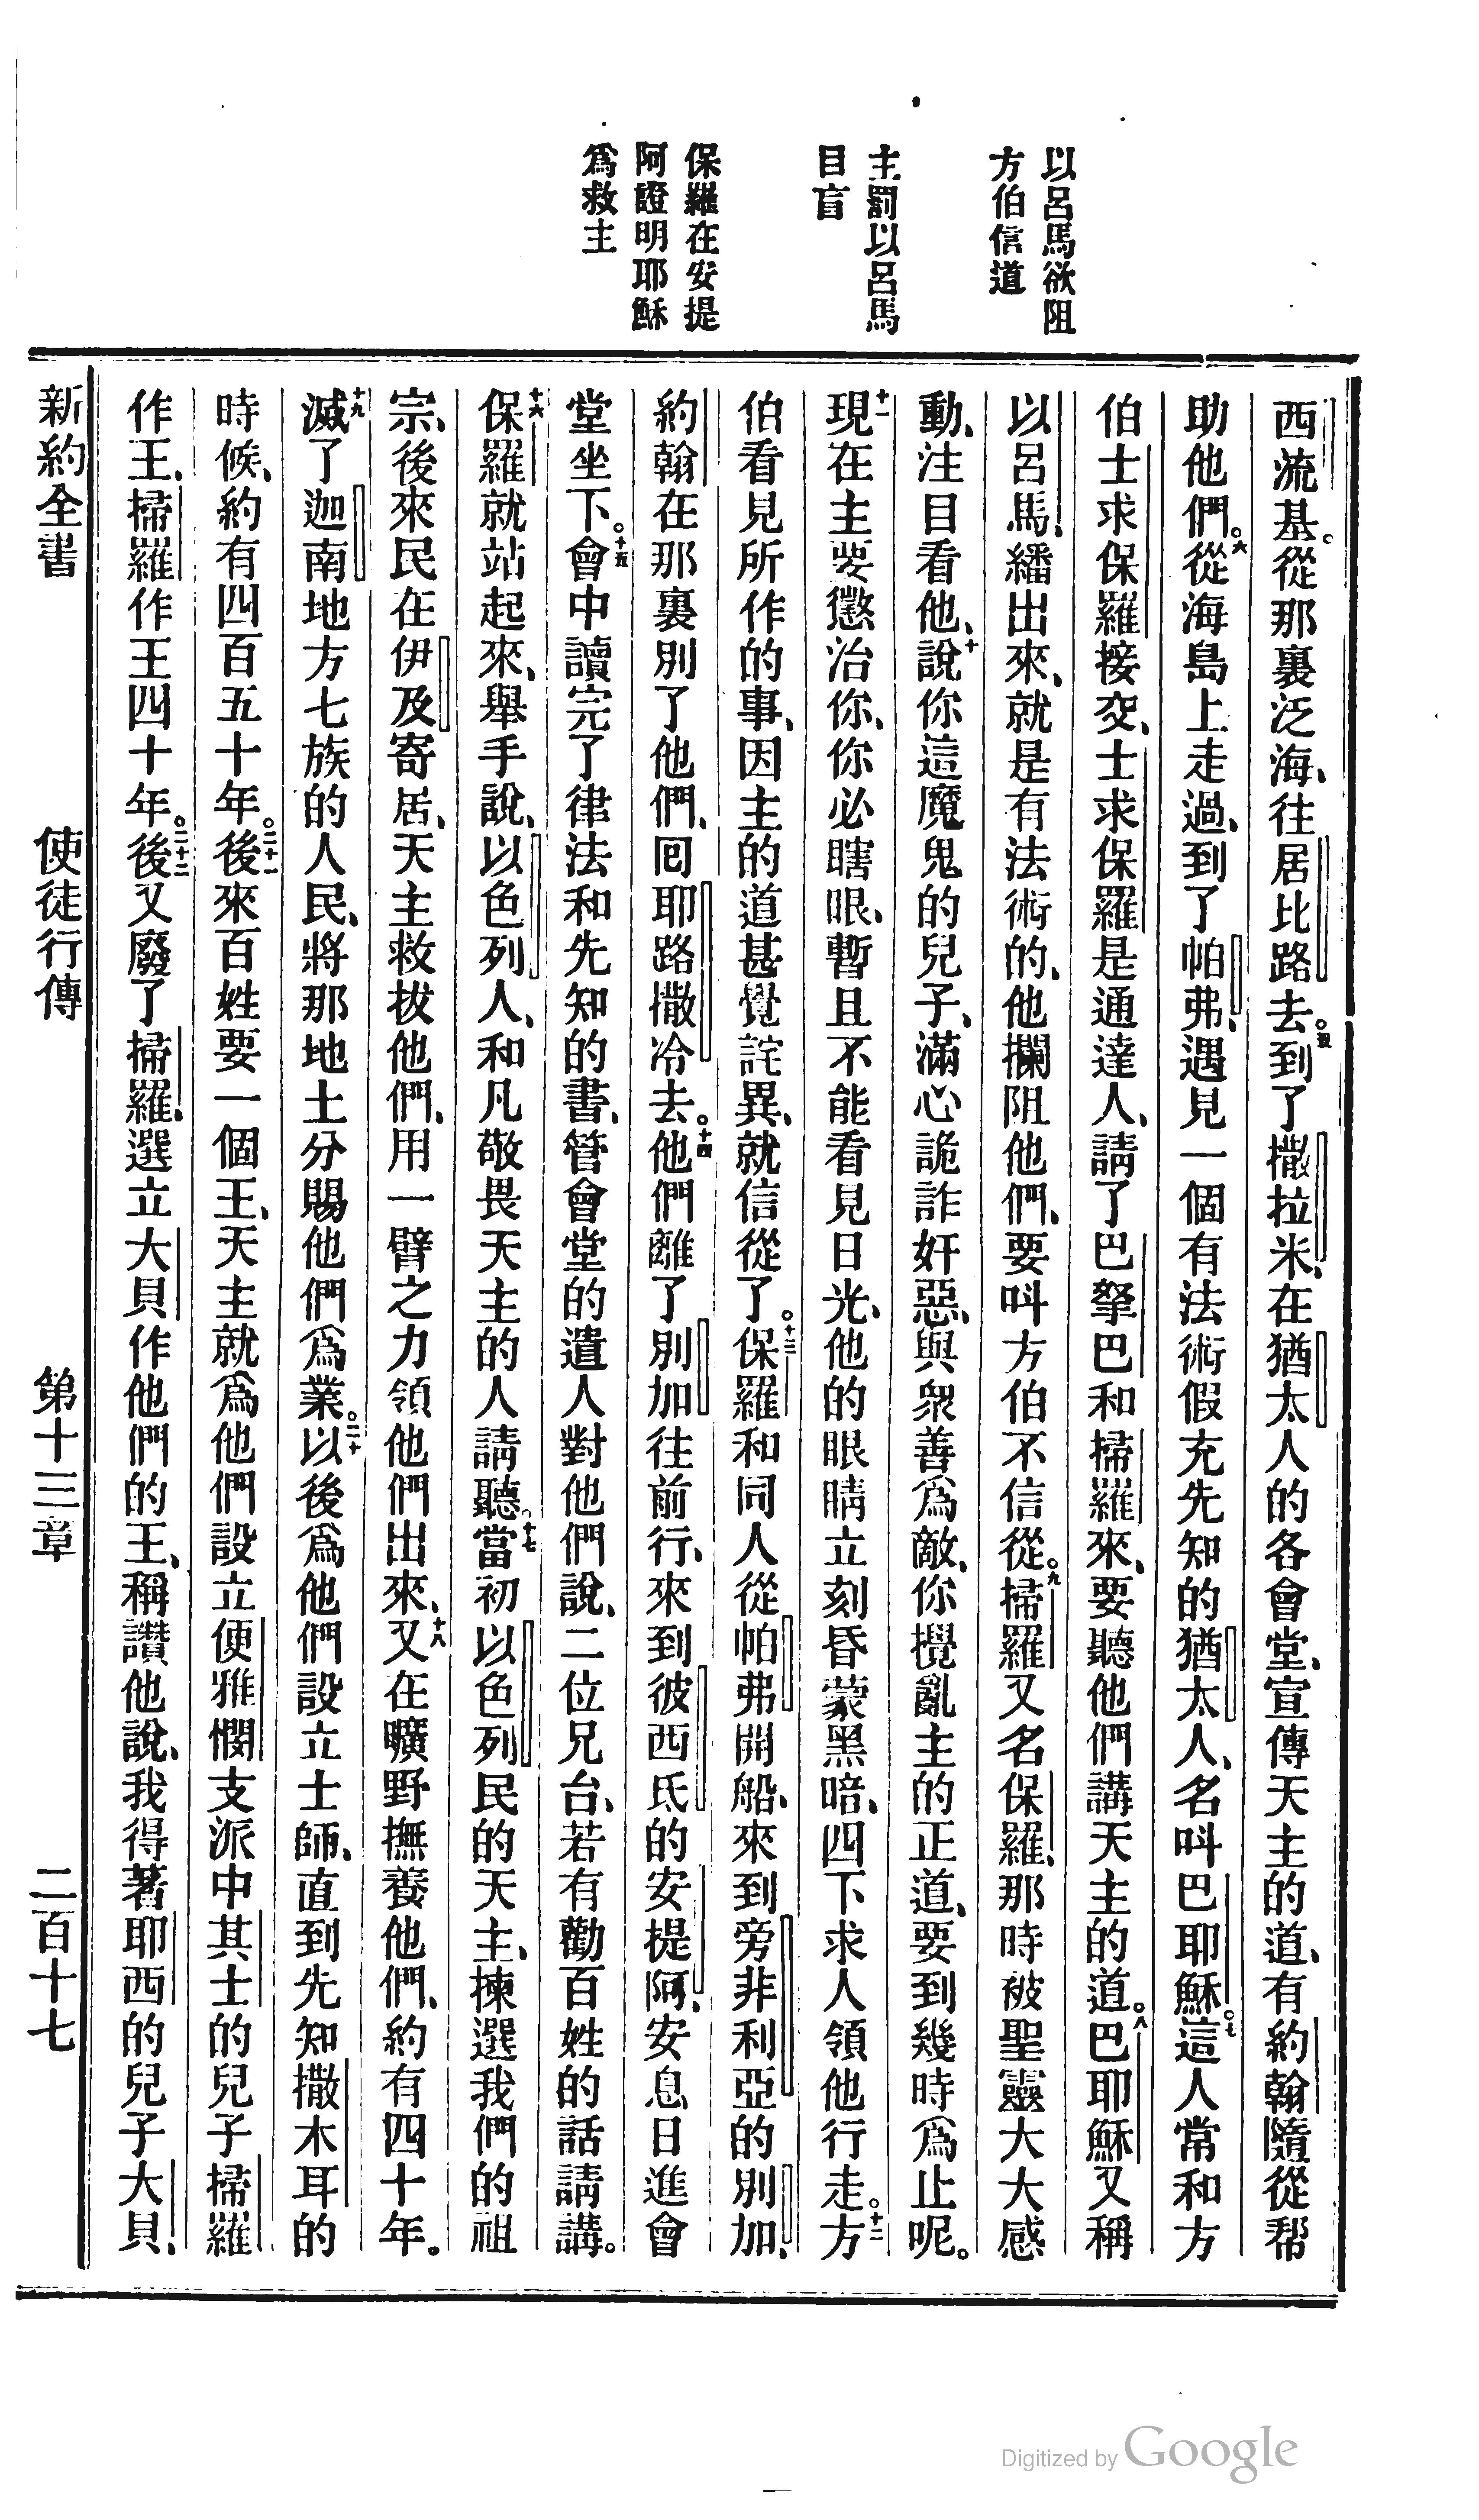 以呂馬欲阻
方伯信道
主罰以呂馬
目盲
保羅在安提
阿證明耶穌
爲救主
西流基。從那裏泛海、往居比路去。五到了撒拉米、在猶太人的各會堂、宣傳天主的道、有約翰隨從帮
助他們。六從海島上走過、到了帕弗、遇見一個有法術假充先知的猶太人、名呌巴耶穌。七這人常和方
伯士求保羅接交、士求保羅是通達人、請了巴拏巴和掃羅來、要聽他們講天主的道。八巴耶穌又稱
以呂馬、繙出來、就是有法術的、他攔阻他們、要呌方伯不信從。九掃羅又名保羅、那時被聖靈大大感
動、注目看他、十說你這魔鬼的兒子、滿心詭詐奸惡、與衆善爲敵、你攪亂主的正道、要到幾時爲止呢。
十一現在主要懲治你、你必瞎眼、暫且不能看見日光、他的眼睛立刻昏蒙黑暗、四下求人領他行走。十二方
伯看見所作的事、因主的道甚覺詫異、就信從了。十三保羅和同人從帕弗開船、來到旁非利亞的別加、
約翰在那裏別了他們、囘耶路撒冷去。十四他們離了別加往前行、來到彼西氐的安提阿、安息日進會
堂坐下。十五會中讀完了律法和先知的書、管會堂的遣人對他們說、二位兄台、若有勸百姓的話請講。
十六保羅就站起來、舉手說、以色列人、和凡敬畏天主的人請聽。十七當初以色列民的天主、揀選我們的祖
宗、後來民在伊及寄居、天主救拔他們、用一臂之力領他們出來、十八又在曠野撫養他們、約有四十年。
十九滅了迦南地方七族的人民、將那地土分賜他們爲業。二十以後爲他們設立士師、直到先知撒木耳的
時候、約有四百五十年。二十一後來百姓要一個王、天主就爲他們設立便雅憫支派中其士的兒子掃羅
作王、掃羅作王四十年。二十二後又廢了掃羅、選立大貝作他們的王、稱讚他說、我得著耶西的兒子大貝、
新約全書 使徒行傳 第十三章 二百十七
Digitized by Google